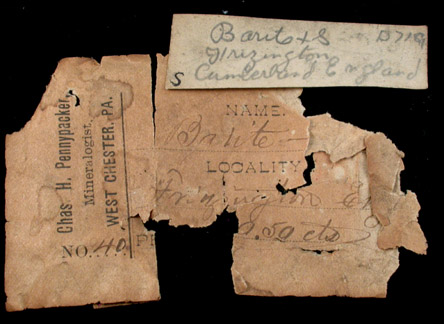 Barite + S D719
Frizington
Cumberland England
S
Chas H. Pennypacker,
Mineralogist,
WEST CHESTER, PA.
NO. 40
NAME.
Barite
LOCALITY
Frizington E
PR .50 cts